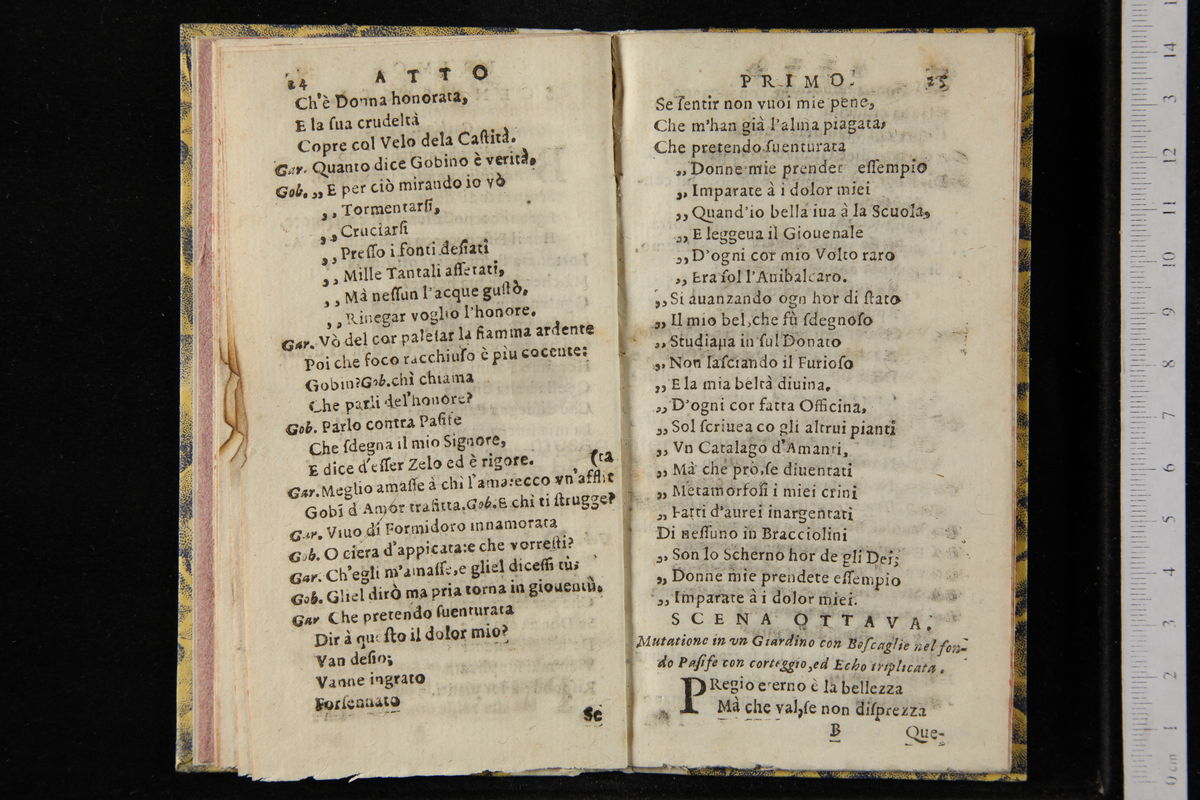 24 ATTO
Ch'è Donna honorata,
E la sua crudeltà
Copre col Velo dela Castità.
Gar. Quanto dice Gobino è verità.
Gob. ,, E per ciò mirando io vò
,, Tormentarsi,
,, Cruciarsi
,, Presso i fonti desiati
,, Mille Tantali assetati,
,, Mà nessun l'acque gustò,
,, Rinegar voglio l'honore.
Gar. Vò del cor palesar la fiamma ardente
Poi che foco racchiuso è più cocente:
Gobin? Gob. chì chiama
Che parli del'honore?
Gob. Parlo contra Pasife
Che sdegna il mio Signore,
E dice d'esser Zelo ed è rigore. (ta
Gar. Meglio amasse à chì l'ama: ecco vn'afflit
Gobī d'Amor trafitta. Gob. E chì ti strugge?
Gar. Viuo di Formidoro innamorata
Gob. O ciera d'appicata: e che vorresti?
Gar. Ch'egli m'amasse, e gliel dicessi tù;
Gob. Gliel dirò ma pria torna in giouentù.
Gar Che pretendo suenturata
Dir à questo il dolor mio?
Van desio;
Vanne ingrato
Forsennato
Se
PRIMO. 25
Se sentir non vuoi mie pene,
Che m'han già l'alma piagata,
Che pretendo suenturata
,, Donne mie prendet essempio
,, Imparate à i dolor miei
,, Quand'io bella iua à la Scuola,
,, E leggeua il Giouenale
,, D'ogni cor mio Volto raro
,, Era sol l'Anibalcaro.
,, Si auanzando ogn hor di stato
,, Il mio bel, che fù sdegnoso
,, Studiaua in sul Donato
,, Non lasciando il Furioso
,, E la mia beltà diuina,
,, D'ogni cor fatta Officina,
,, Sol scriuea co gli altrui pianti
,, Vn Catalago d'Amanti,
,, Mà che prò, se diuentati
,, Metamorfosi i miei crini
,, Fatti d'aurei inargentati
Di nessuno in Bracciolini
,, Son lo Scherno hor de gli Dei;
,, Donne mie prendete essempio
,, Imparate à i dolor miei.
SCENA OTTAVA.
Mutatione in vn Giardino con Boscaglie nel fon-
do Pasife con corteggio, ed Echo triplicata.
PRegio eterno è la bellezza
Mà che val, se non disprezza
B Que-